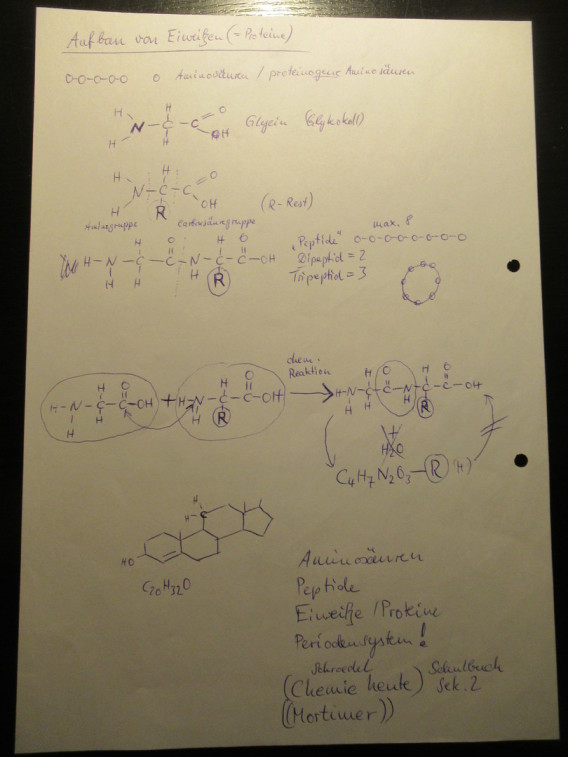 Aufbau von Eiweißen (= Proteine)
O-O-O-O-O O Aminosäuren / proteinogene Aminosäuren
H H O
N – C – C
H H OH Glycin (Glykokoll)
H H O
N – C – C
H R OH (R-Rest)
Aminogruppe Carbonsäuregruppe
max. 8
"Peptide" O-O-O-O-O-O-O-O
Dipeptid = 2
Tripeptid = 3
H O H O
H – N – C – C – N – C – C – OH
H H H R
chem.
Reaktion
H O H O H O H O
H – N – C – C – OH + H – N – C – C – OH → H – N – C – C – N – C – C – OH
H H H R H H H R
+
H2O
C4H7N2O3 – R (H)
H
H – C
HO
C20H32O
Aminosäuren
Peptide
Eiweiße / Proteine
Periodensystem!
Schroedel Schulbuch
(Chemie heute) Sek. 2
((Mortimer))